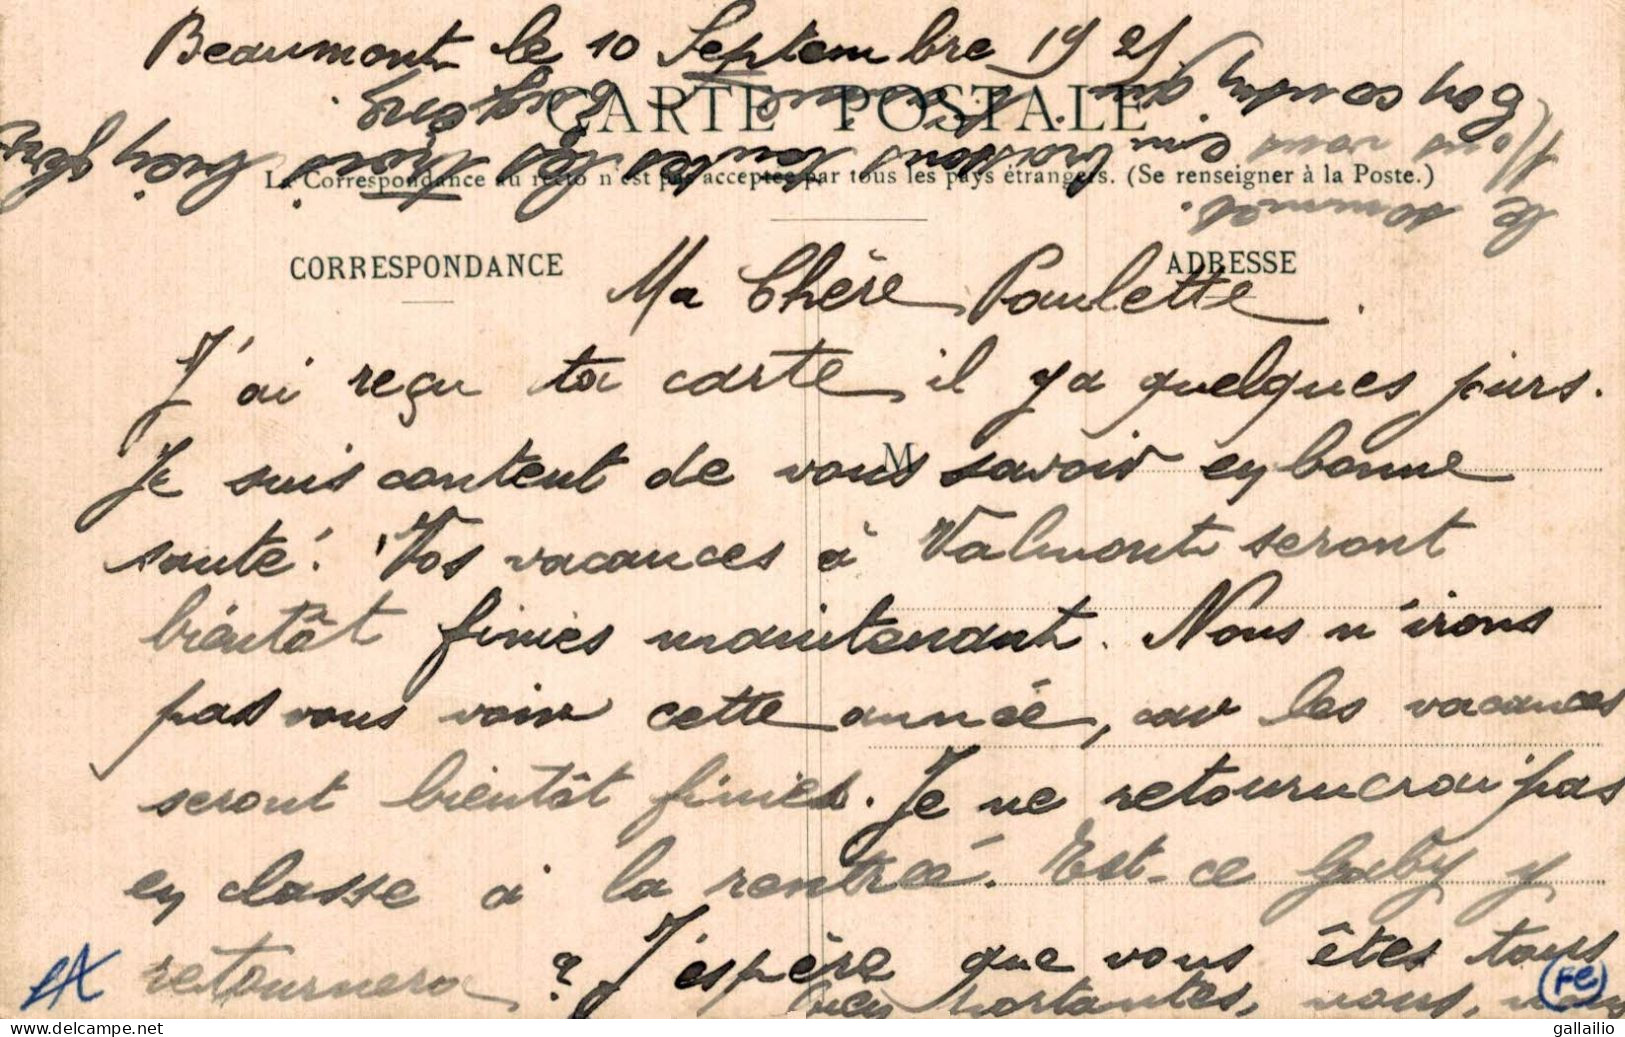 Beaumont le 10 Septembre 1921
CARTE POSTALE
La Correspondance au recto n'est pas acceptée par tous les pays étrangers. (Se renseigner à la Poste.)
CORRESPONDANCE
ADRESSE
Ma Chère Paulette.
J'ai reçu ta carte il y a quelques jours.
Je suis content de vous savoir en bonne
M
santé! Vos vacances à Valmont seront
bientôt finies maintenant. Nous n'irons
pas vous voir cette année, car les vacances
seront bientôt finies. Je ne retournerai pas
en classe à la rentrée. Est-ce Gaby y
retournera ? J'espère que vous êtes tous
bien portantes, nous, nous
Nous vous embrassons toutes les trois bien fort
LA
Fe
gallailio